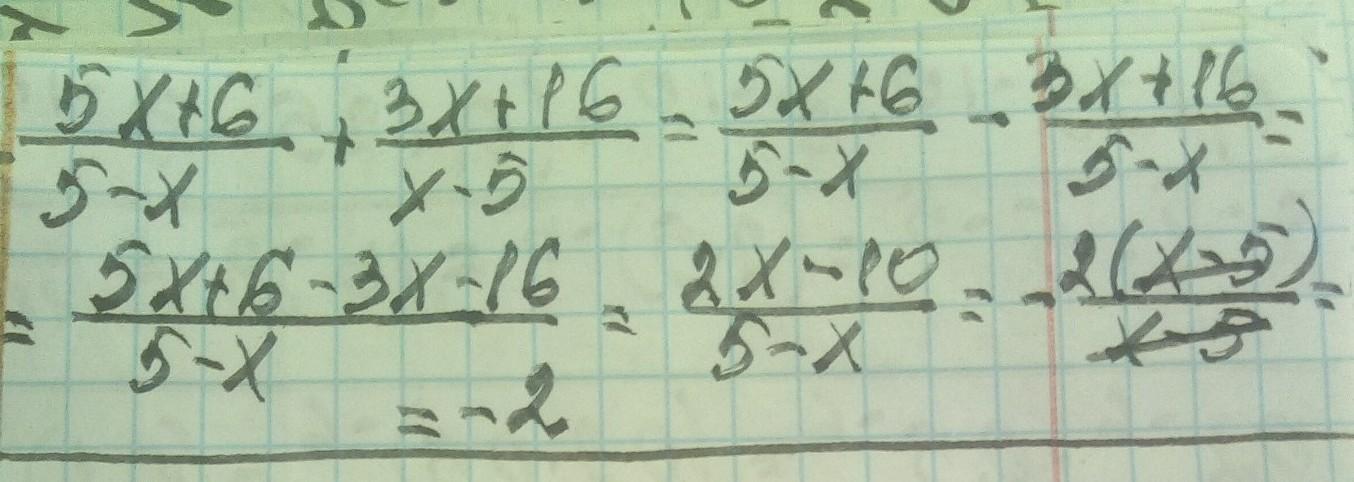 (5x+6)/(5-x) + (3x+16)/(x-5) = (5x+6)/(5-x) - (3x+16)/(5-x) =
= (5x+6-3x-16)/(5-x) = (2x-10)/(5-x) = - 2(x-5)/(x-5) =
= -2